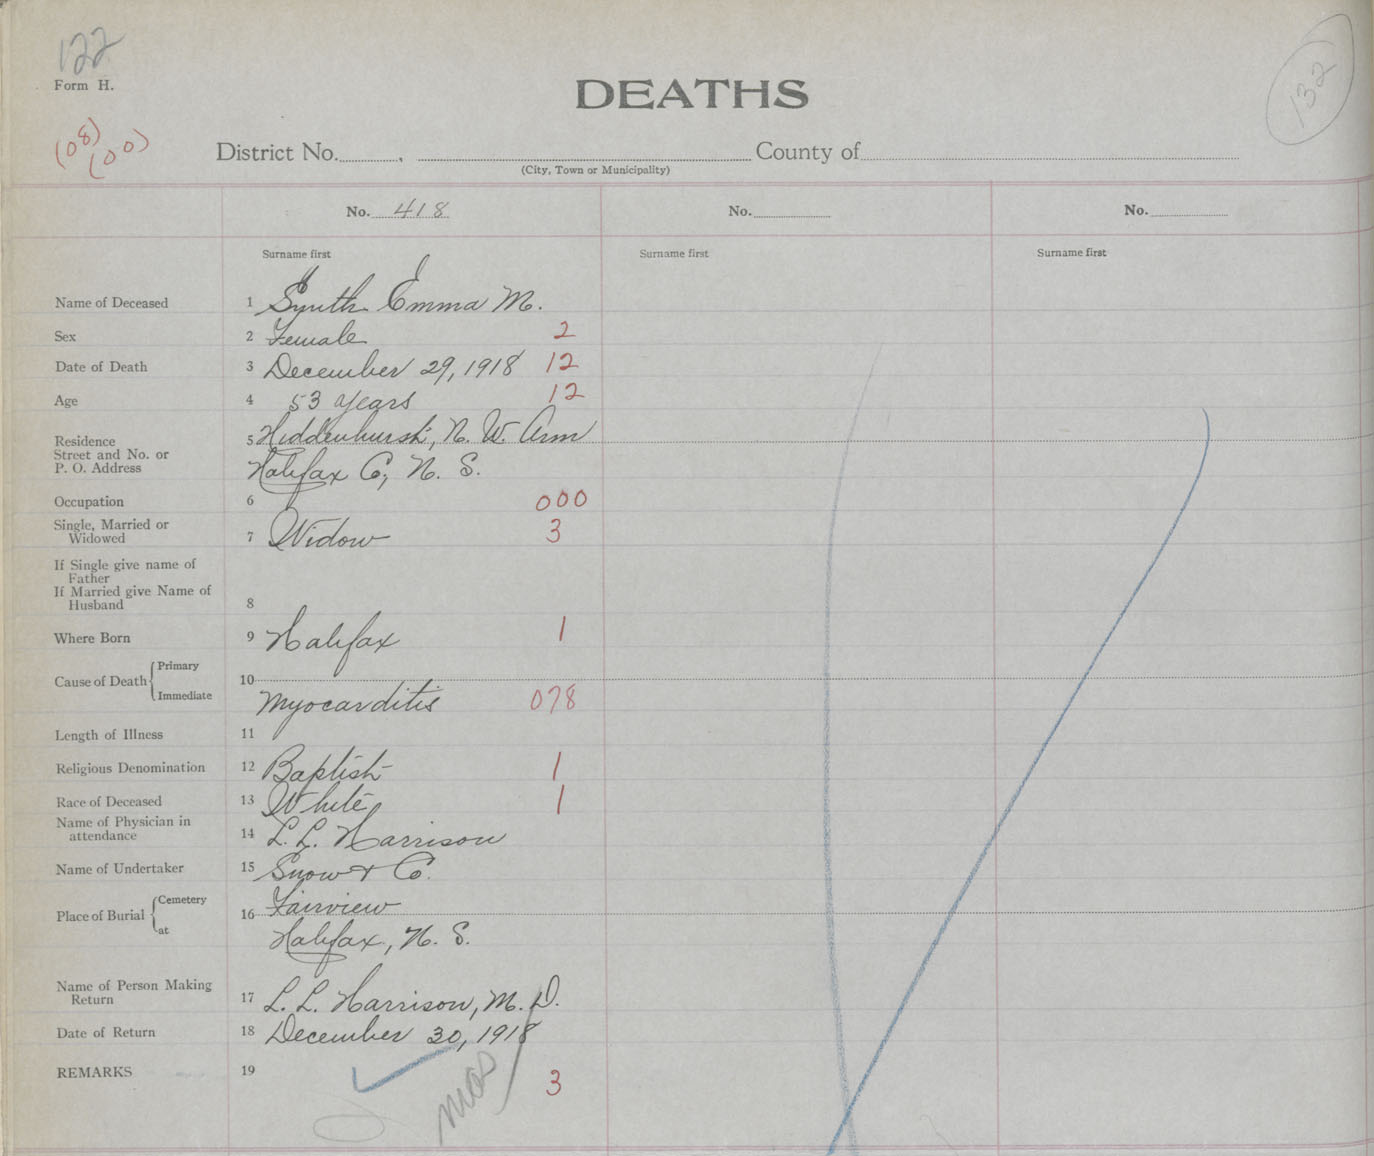 122
Form H.
DEATHS
132
(08)
(00)
District No. , County of
(City, Town or Municipality)
No. 418 No. No.
Surname first Surname first Surname first
Name of Deceased 1 Smith Emma M.
Sex 2 Female 2
Date of Death 3 December 29, 1918 12
Age 4 53 years 12
Residence 5 Hiddenhurst, N. W. Arm
Street and No. or
P. O. Address Halifax Co, N. S.
Occupation 6 000
Single, Married or
Widowed 7 Widow 3
If Single give name of
Father
If Married give Name of
Husband 8
Where Born 9 Halifax 1
Cause of Death Primary 10
Immediate Myocarditis 078
Length of Illness 11
Religious Denomination 12 Baptist 1
Race of Deceased 13 White 1
Name of Physician in
attendance 14 L. L. Harrison
Name of Undertaker 15 Snow & Co.
Place of Burial Cemetery 16 Fairview
at Halifax, N. S.
Name of Person Making
Return 17 L. L. Harrison, M. D.
Date of Return 18 December 30, 1918
REMARKS 19
3